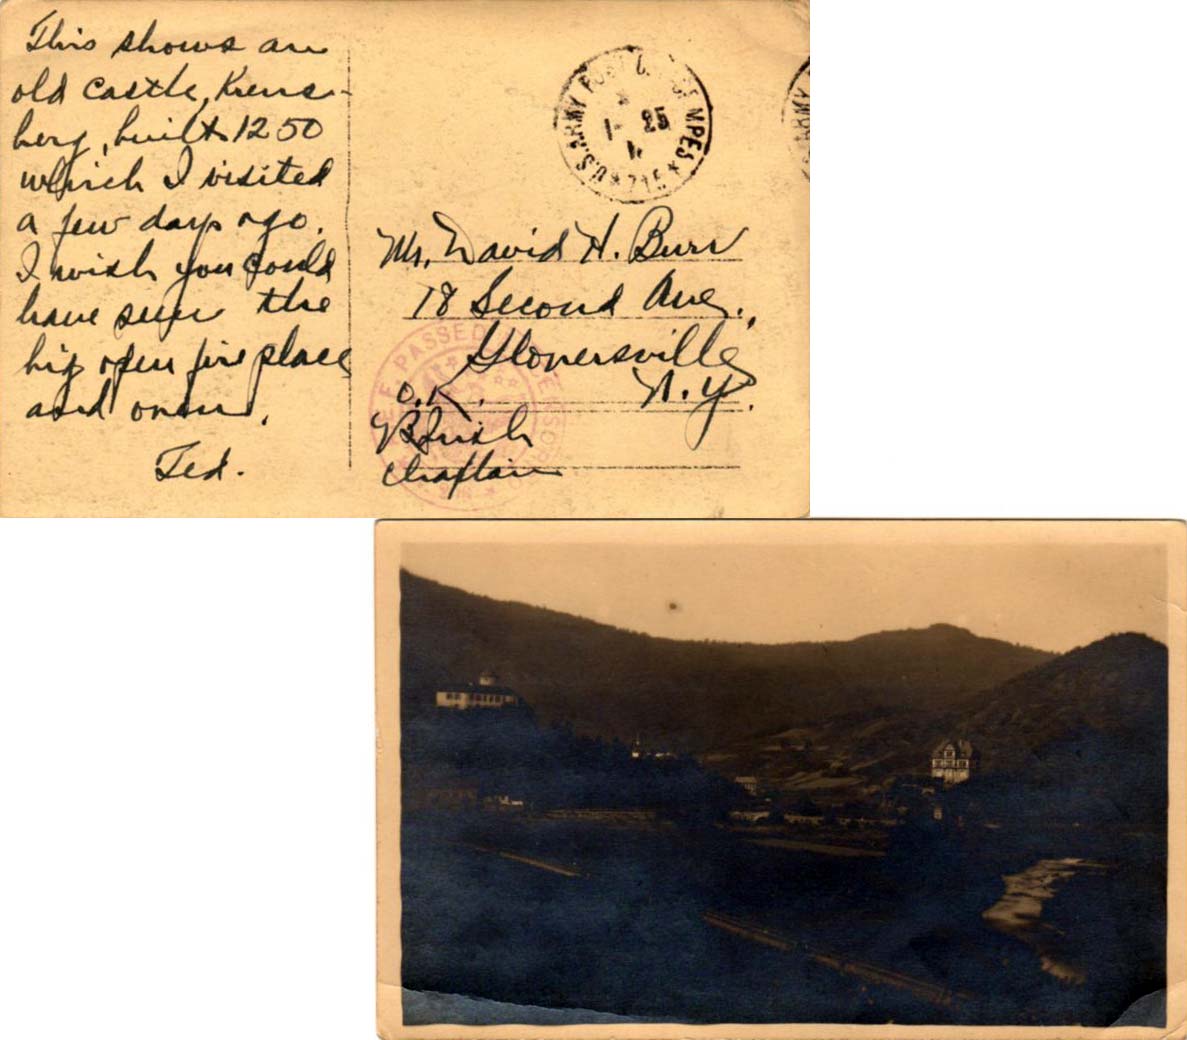 This shows an
old castle, Krens-
berg, built 1250
which I visited
a few days ago.
I wish you could
have seen the
big open fire place
and oven.
Ted.
U.S. ARMY POST OFFICE M.P.E.S. * 715 *
1- 25
Mr. David H. Burr
18 Second Ave.,
Gloversville
N.Y.
A.E.F. PASSED CENSOR
O.K.
Chaplain